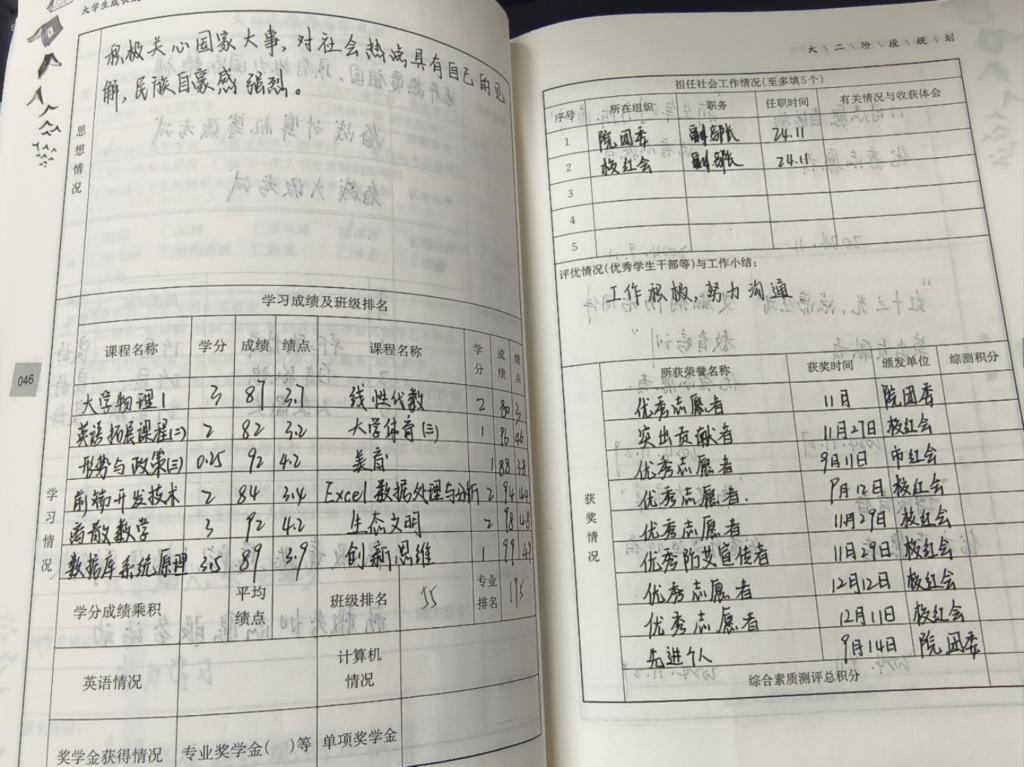 积极关心国家大事，对社会热点具有自己的见
解，民族自豪感强烈。
思想情况
学习成绩及班级排名
课程名称 学分 成绩 绩点 课程名称 学分 成绩 绩点
大学物理1 3 87 3.7 线性代数 2 80 3
英语拓展课程(二) 2 82 3.2 大学体育(三) 1 96 4.6
形势与政策(三) 0.25 92 4.2 美育 1 88 3.8
前端开发技术 2 84 3.4 Excel数据处理与分析 2 94 4.4
离散数学 3 92 4.2 生态文明 2 98 4.8
数据库系统原理 3.5 89 3.9 创新思维 1 99
学习情况
学分成绩乘积 平均绩点 班级排名 专业排名
英语情况 计算机情况
奖学金获得情况 专业奖学金( )等 单项奖学金
046
大\二\阶\段\规\划
担任社会工作情况(至多填5个)
序号 所在组织 职务 任职时间 有关情况与收获体会
1 院团委 副部长 24.11
2 校红会 副部长 24.11
3
4
5
评优情况(优秀学生干部等)与工作小结：
工作积极，努力沟通
所获荣誉名称 获奖时间 颁发单位 综测积分
优秀志愿者 11月 院团委
突出贡献者 11月27日 校红会
优秀志愿者 9月11日 市红会
优秀志愿者. 9月12日 校红会
优秀志愿者 11月29日 校红会
优秀防艾宣传者 11月29日 校红会
优秀志愿者 12月12日 校红会
优秀志愿者 12月11日 校红会
先进个人 9月14日 院团委
获奖情况
综合素质测评总积分